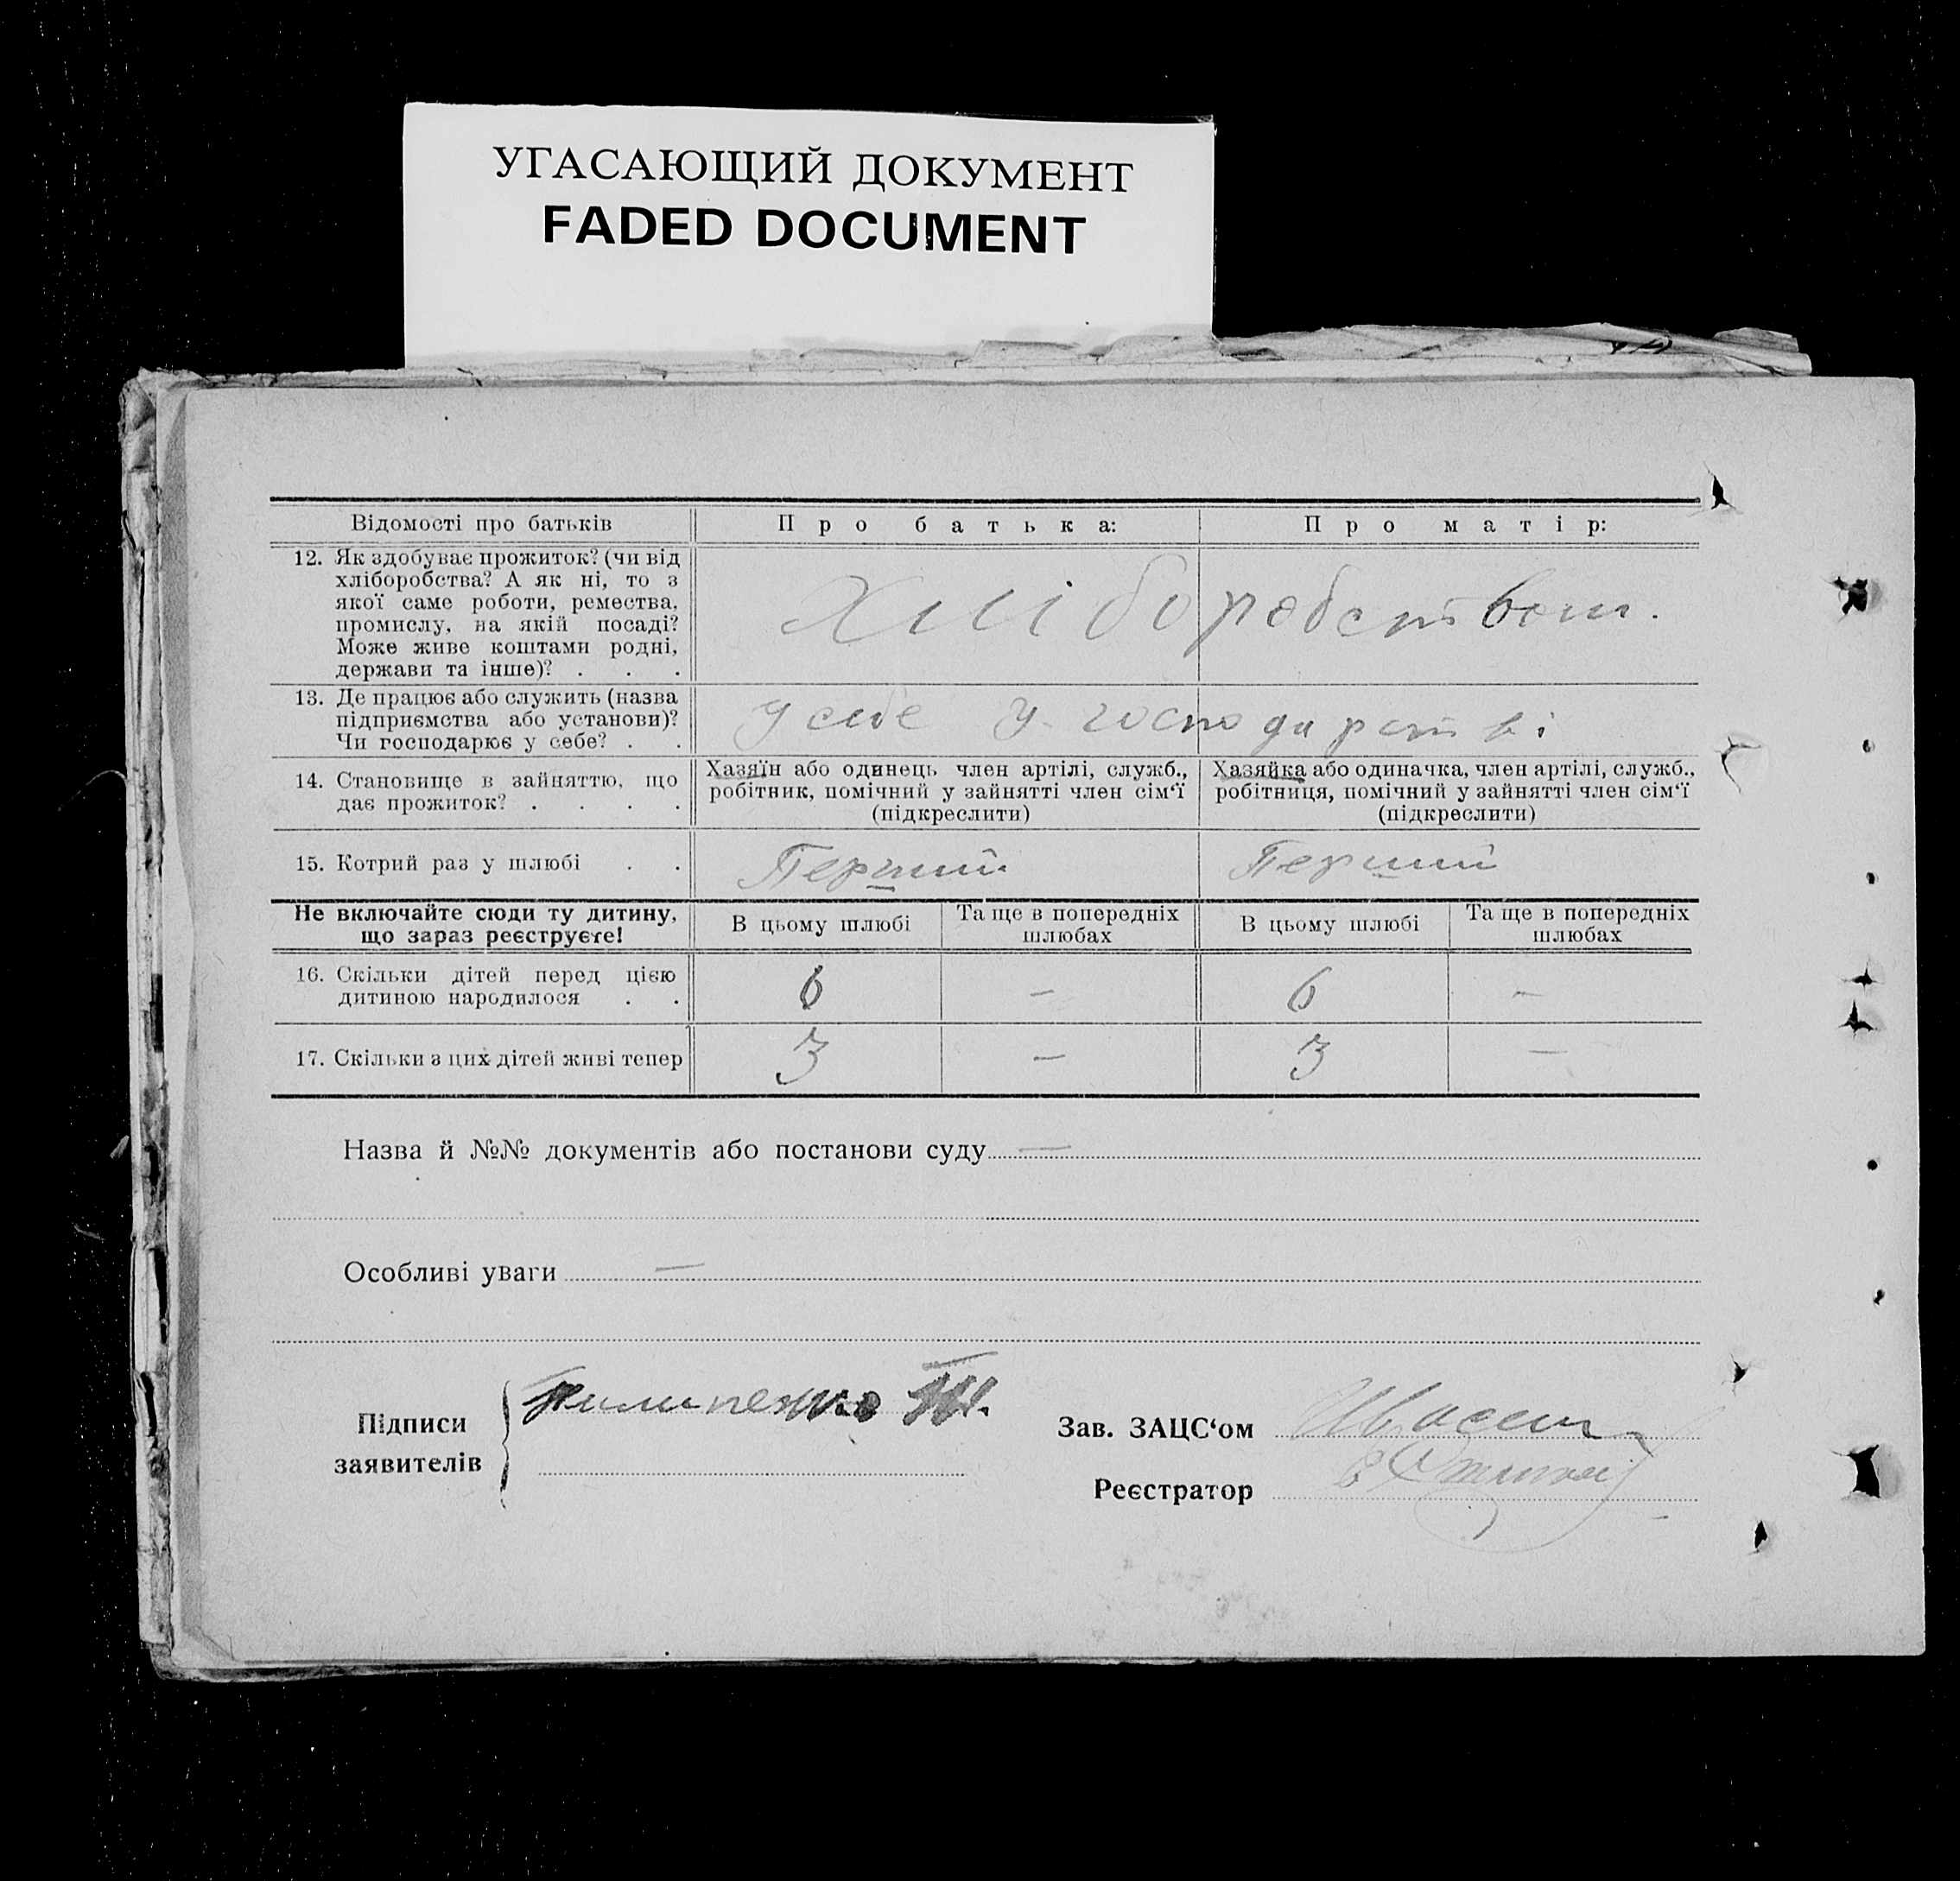 УГАСАЮЩИЙ ДОКУМЕНТ
FADED DOCUMENT
Відомості про батьків
Про батька:
Про матір:
12. Як здобуває прожиток? (чи від
хліборобства? А як ні, то з
якої саме роботи, ремества,
промислу, на якій посаді?
Може живе коштами родні,
держави та інше)? . . .
Хліборобством.
13. Де працює або служить (назва
підприємства або установи)?
Чи господарює у себе? . .
У себе у господарстві
14. Становище в зайняттю, що
дає прожиток? . . . .
Хазяїн або одинець член артілі, служб.,
робітник, помічний у зайнятті член сім‘ї
(підкреслити)
Хазяйка або одиначка, член артілі, служб.,
робітниця, помічний у зайнятті член сім‘ї
(підкреслити)
15. Котрий раз у шлюбі . .
Перший
Перший
Не включайте сюди ту дитину,
що зараз реєструєте!
В цьому шлюбі
Та ще в попередніх
шлюбах
В цьому шлюбі
Та ще в попередніх
шлюбах
16. Скільки дітей перед цією
дитиною народилося . .
6 — 6 —
17. Скільки з цих дітей живі тепер
3 — 3 —
Назва й №№ документів або постанови суду —
Особливі уваги —
Підписи
заявителів
Пилипенко
Зав. ЗАЦС‘ом
Реєстратор